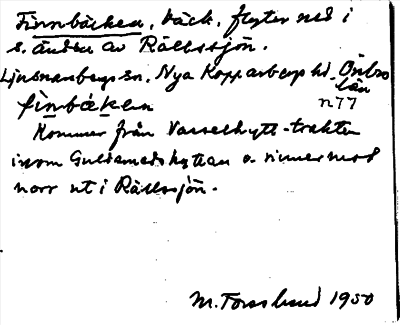 Finnbäcken, bäck, flyter ned i
s. ändan av Rällssjön.
Ljusnarsbergs sn. Nya Kopparbergs hd. Örebro
län
finbäken n77
Kommer från Vasselhytte-trakten
inom Guldsmedshyttan o. rinner mot
norr ut i Rällssjön.
M. Forslund 1950